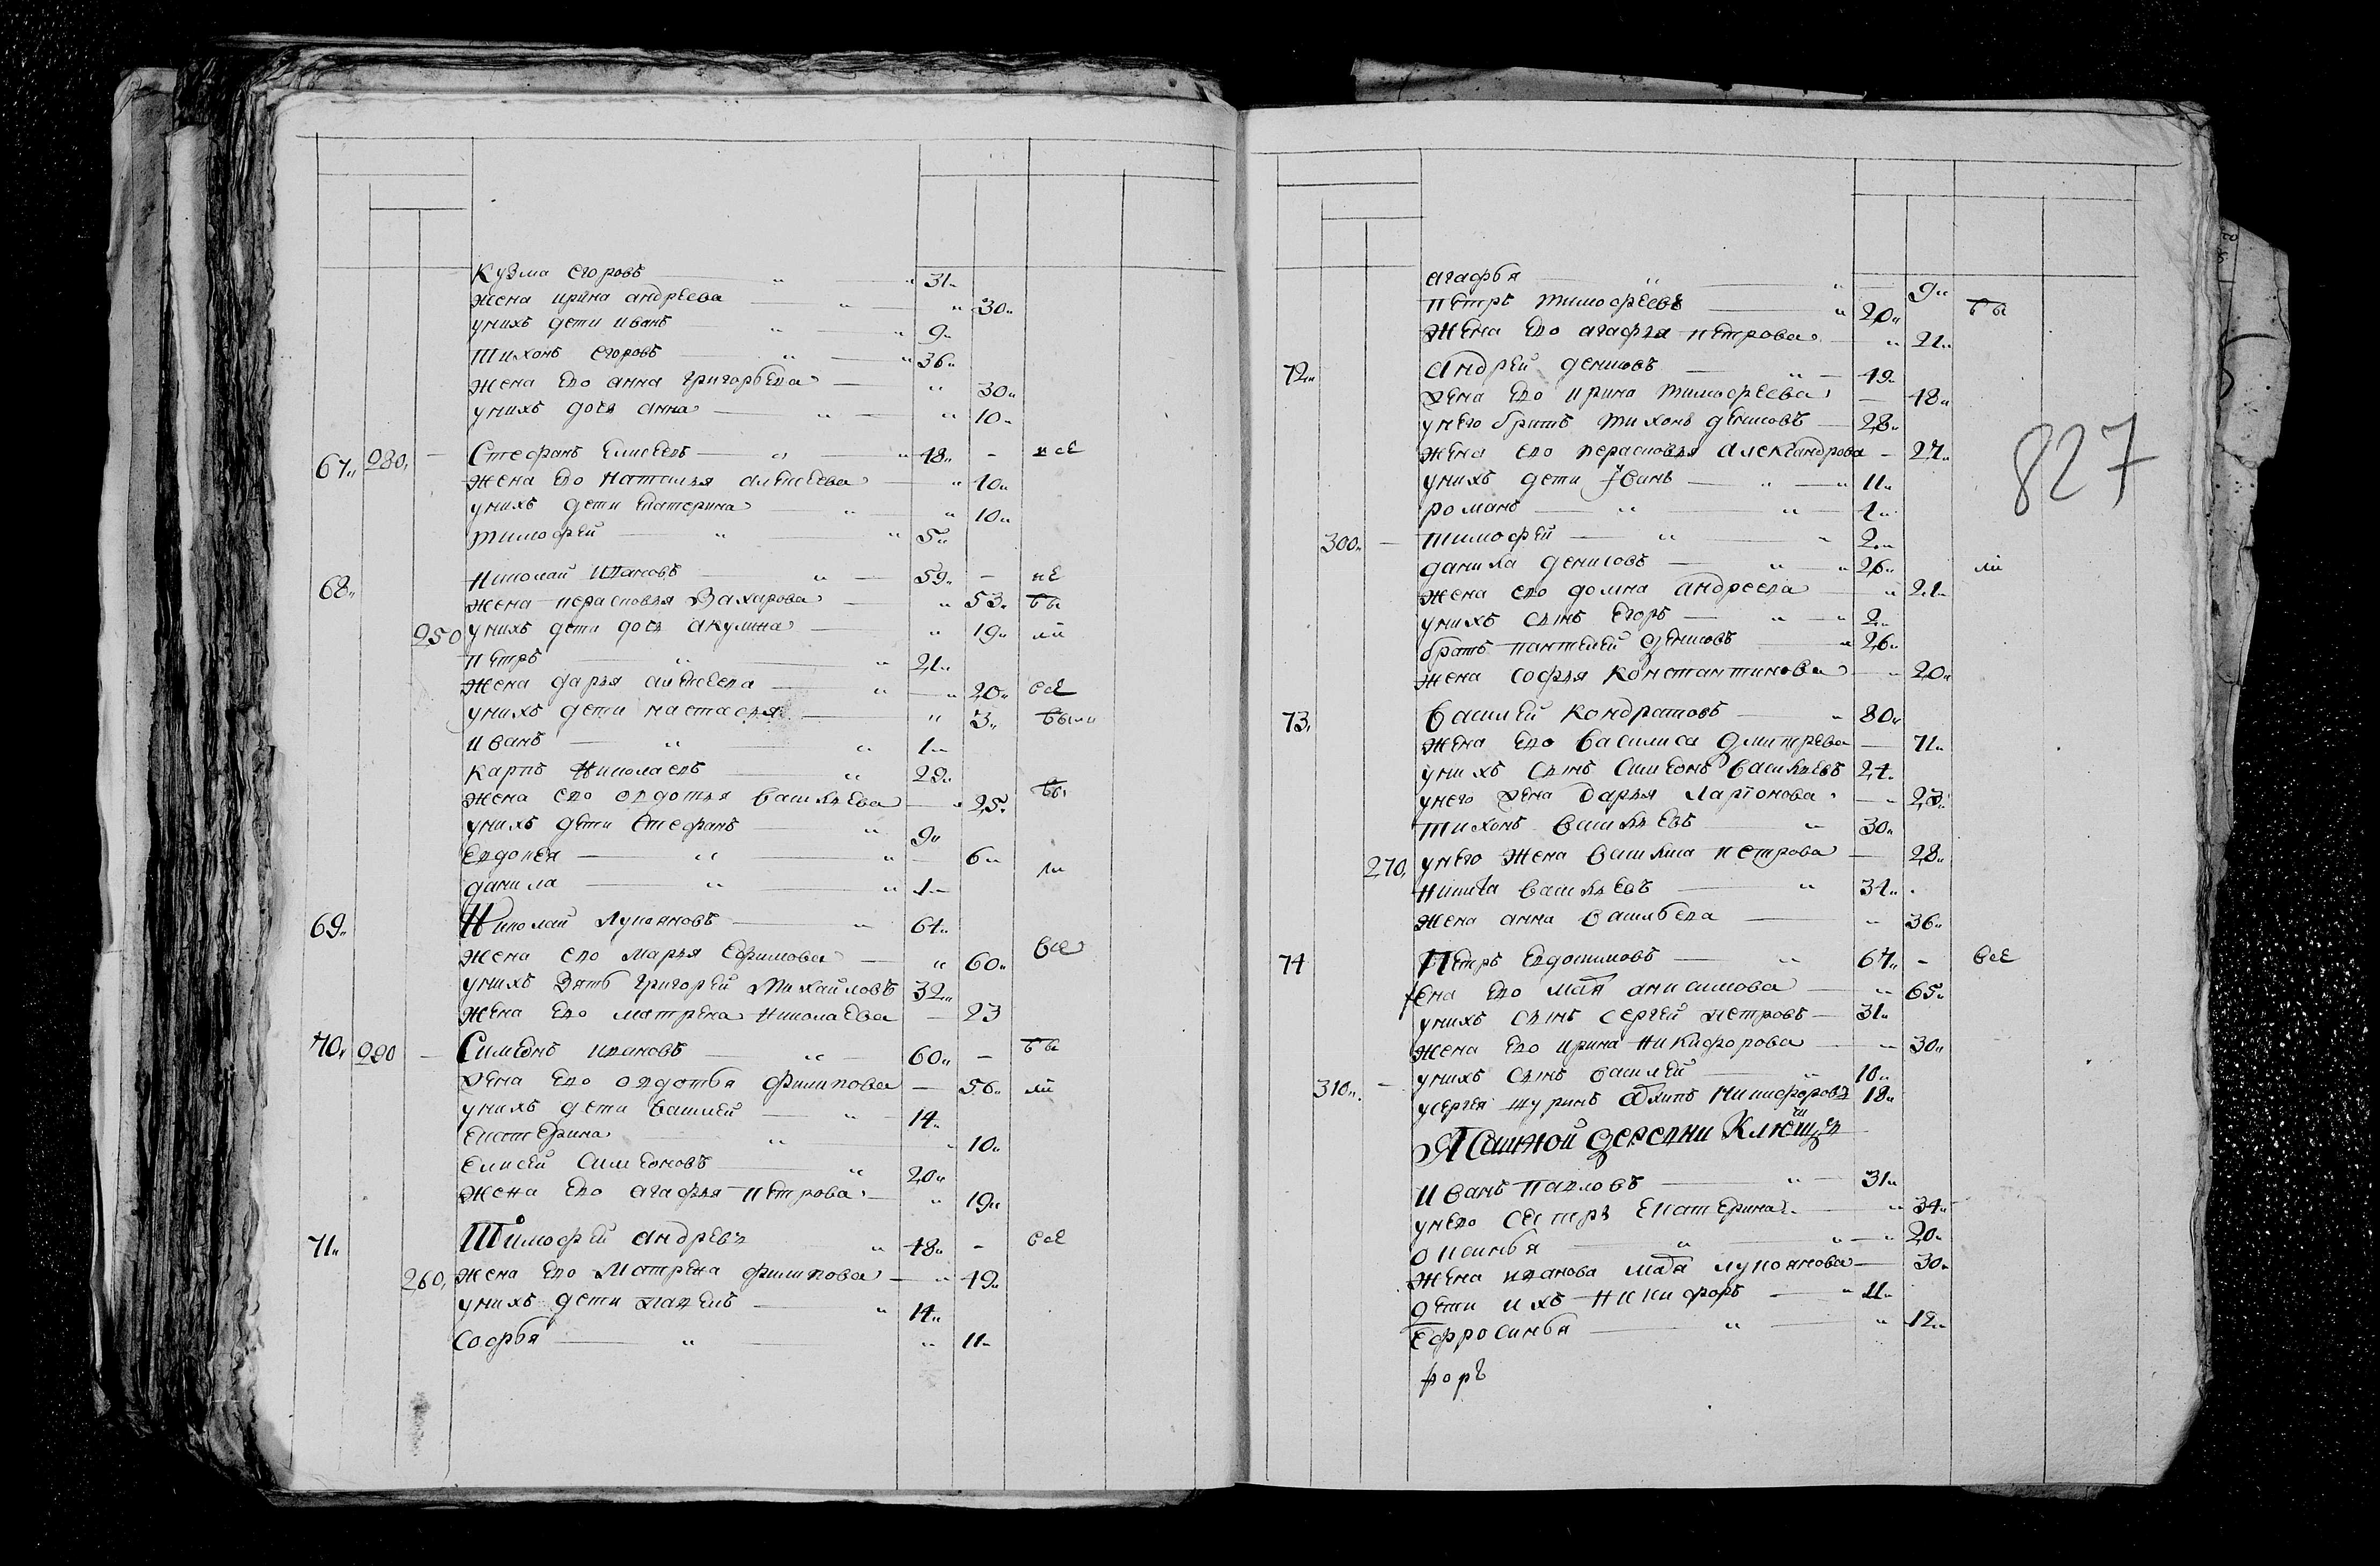 Кузма Егоровъ " " 31"
жена ирина андреева " " 30"
унихъ дети иванъ " " 9"
Тихонъ Егоровъ " " 36"
жена Ево анна Григорьева " 30"
унихъ дочь анна " " 10"
67" 280, Стефанъ Елисеевъ " " 48" - все
жена Ево Наталья алексеева " 40"
унихъ дети Екатерина " " 10"
тимофей " " 5"
68" Николай Ивановъ " 59" - не
жена перасковья Захарова " 53" бы
250 унихъ дети дочь акулина " 19" ли
петръ " " 21"
жена дарья алексеева " " 20" все
унихъ дети настасья " 3" были
иванъ " " 1"
карпъ Николаевъ " 29"
жена Ево авдотья васильева " 25" бы
унихъ дети Стефанъ " 9"
Евдокея " " 6"
данила " " 1" ли
69" Николай Лукояновъ " 64"
жена Ево марья Ефимова " 60" все
унихъ Зять Григорей Михайловъ 32"
жена Ево матрена Николаева - 23
70" 290 Симеонъ ивановъ " 60" - бы
жена Ево авдотья филипова - 56" ли
унихъ дети василей " 14"
Екатерина " " 10"
Елисей Симеоновъ " 20"
жена Ево агафья петрова " 19"
71" Тимофей андревъ " 48" - все
260, жена Ево Матрена филипова " 49"
унихъ дети павелъ " 14"
Софья " " 11"
агафья " " 9"
петръ тимофеевъ " 20" бы
жена Ево агафья петрова " 21"
72" андрей денисовъ " 49"
жена Ево ирина тимофеева - 48"
унего братъ тихонъ денисовъ 28"
жена Ево перасковья александрова - 27"
унихъ дети " " 11"
романъ " " 4"
300" тимофей " " 2"
данила денисовъ " " 26" ли
жена Ево домна андреева " 21"
унихъ сынъ Егоръ " " 2"
братъ пантелей денисовъ " 26"
жена софья Константинова " 20"
73, василей кондратовъ " 80"
жена Ево василиса дмитрева 71"
унихъ сынъ симеонъ васильевъ 24"
унего жена дарья Ларионова " 23"
тихонъ васильевъ " 30"
270, унего жена василиса петрова 28"
Никита васильевъ " 34"
жена анна васильева " 36"
74 Петръ Евдокимовъ " 67" - все
жена Ево марья анисимова " 65"
унихъ сынъ сергей петровъ 31"
жена Ево ирина Никифорова " 30"
унихъ сынъ василей " 10"
310" усергея шуринъ Никифоровъ 18"
827
деревни
иванъ павловъ " 31"
унево сестра Екатерина " 34"
" " 20"
жена иванова марья лукоянова 30"
дети ихъ Никифоръ " 11"
Ефросинья " " 12"
форъ